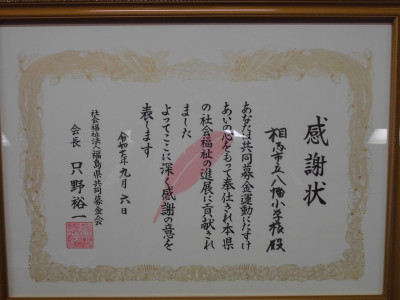 感謝状
相馬市立八幡小学校 殿
あなたは共同募金運動にたすけ
あいの心をもって奉仕され本県
の社会福祉の進展に貢献され
ました
よってここに深く感謝の意を
表します
令和七年九月六日
社会福祉法人福島県共同募金会
会長 只野裕一